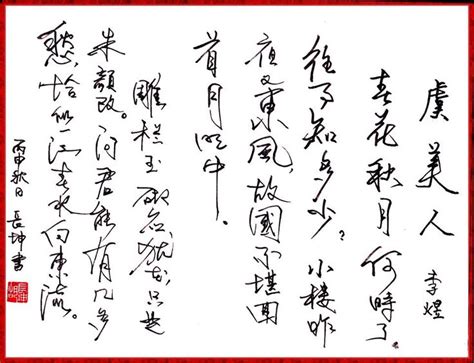 虞美人
李煜
春花秋月何時了。
往事知多少？小楼昨
夜又東风，故國不堪回
首月明中。
雕栏玉砌应犹在，只是
朱顔改。问君能有几多
愁，恰似一江春水向东流。
丙申秋日 長坤書